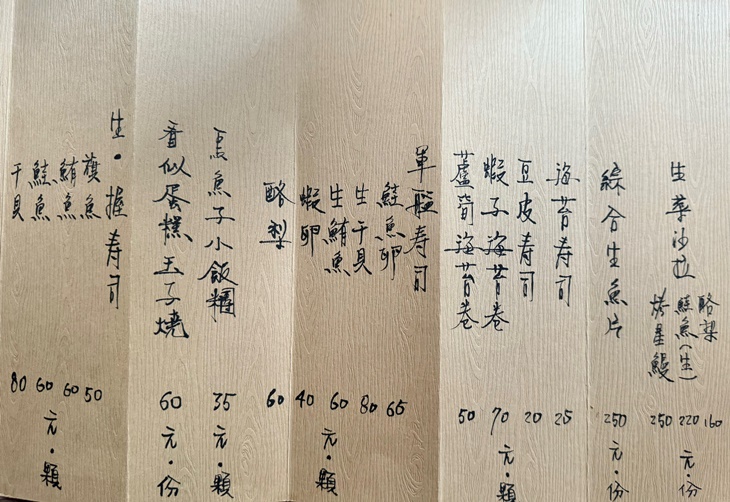 生菜沙拉
酪梨 160
鮭魚(生) 220
烤星鰻 250
元・份
綜合生魚片 250
元・份
海苔寿司 25
豆皮寿司 20
蝦子海苔卷 70
蘆筍海苔卷 50
元・顆
軍艦寿司
鮭魚卵 65
生干貝 80
生鮪魚 60
蝦卵 40
酪梨 60
元・顆
烏魚子小飯糰 35
元・顆
看似蛋糕玉子燒 60
元・份
生・握寿司
旗魚 50
鮪魚 60
鮭魚 60
干貝 80
元・顆